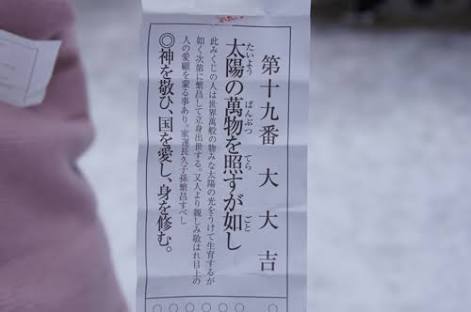 第十九番 大大吉
太陽の萬物を照すが如し
たいよう ばんぶつ てら ごと
此みくじの人は世界萬般の物みな太陽の光をうけて生育するが
如く次第に繁昌して立身出世する。又人より親しみ敬はれ目上の
人の愛顧を蒙る事あり。家運長久子孫繁昌すべし
◎神を敬ひ、国を愛し、身を修む。